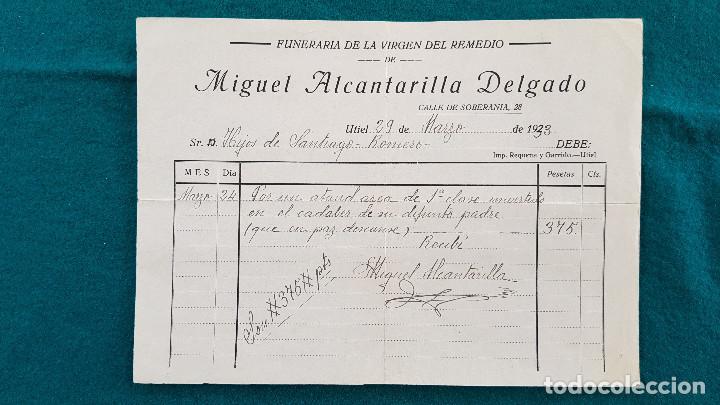 FUNERARIA DE LA VIRGEN DEL REMEDIO
DE
Miguel Alcantarilla Delgado
CALLE DE SOBERANIA, 28
Utiel 29 de Marzo de 1933
Sr. D. Hijos de Santiago Romero DEBE:
Imp. Requena y Garrido.-Utiel
MES Día Pesetas Cts.
Marzo 24 Por un ataud arca de 1ª clase invertido
en el cadaber de su difunto padre
(que en paz descanse) 375
Recibí
Miguel Alcantarilla
Son #375# pts
todocoleccion.net